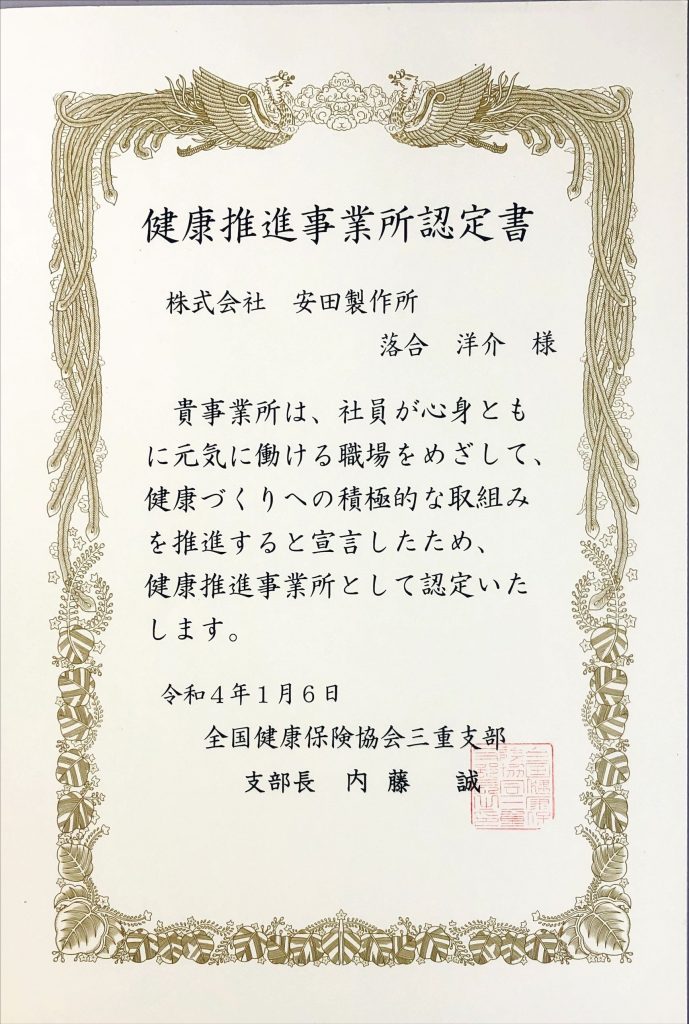 健康推進事業所認定書
株式会社　安田製作所
落合　洋介　様
貴事業所は、社員が心身とも
に元気に働ける職場をめざして、
健康づくりへの積極的な取組み
を推進すると宣言したため、
健康推進事業所として認定いた
します。
令和４年１月６日
全国健康保険協会三重支部
支部長　内　藤　　誠